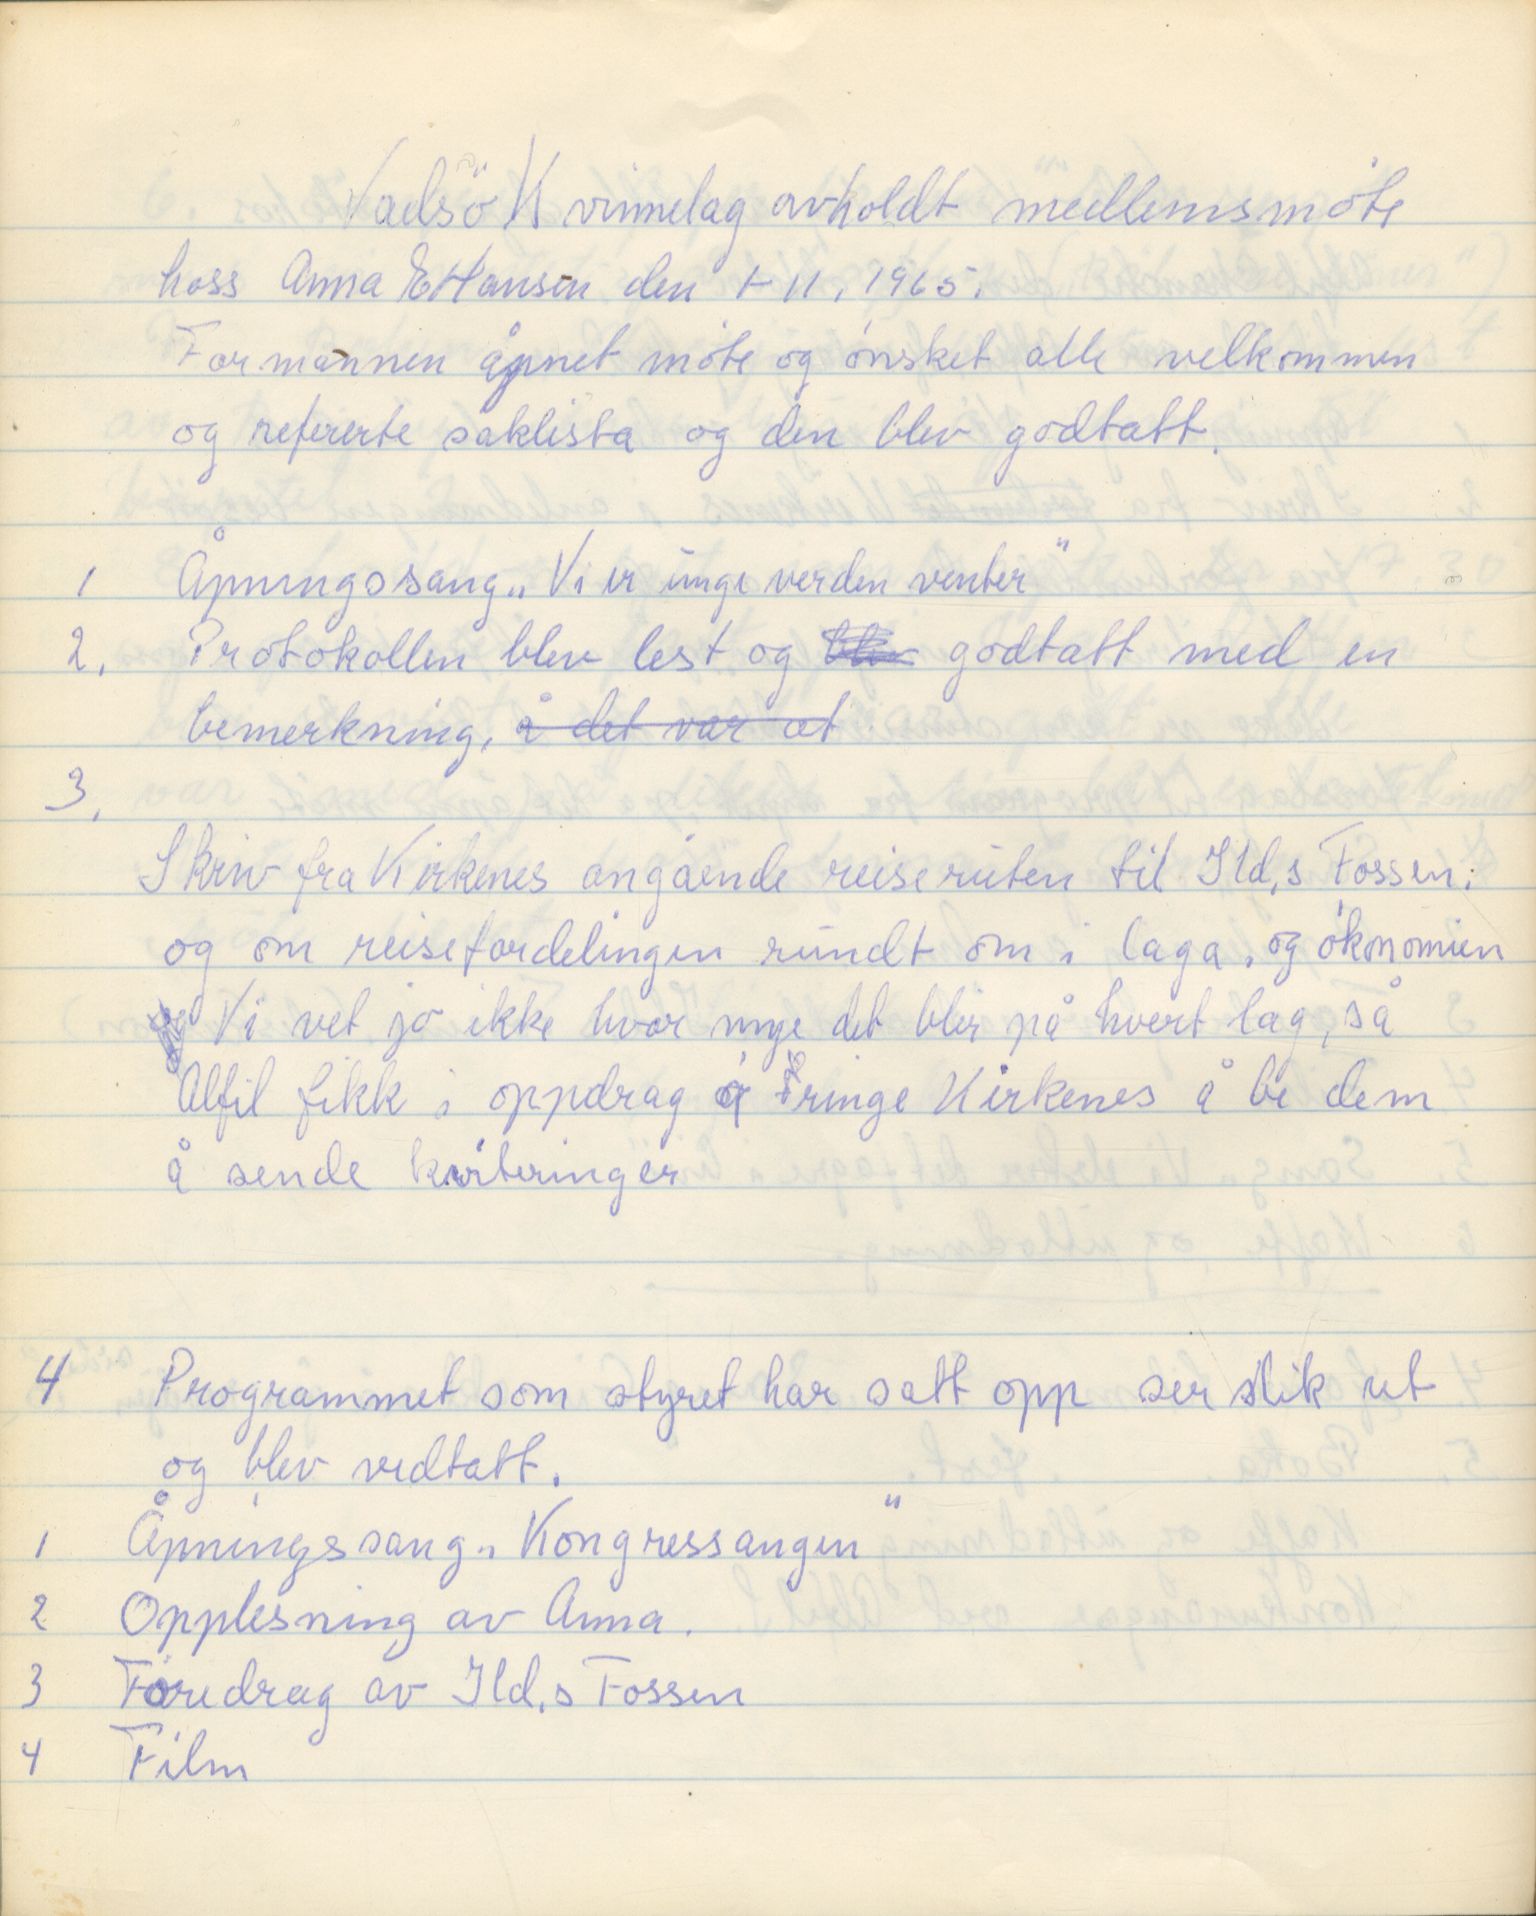 Vadsö Kvinnelag avholdt medlemsmöte
hoss Anna E Hansen den 1-11, 1965.
Formannen åpnet möte og önsket alle velkommen
og refererte saklista og den blev godtatt.
1 Åpningssang „Vi er unge verden venter"
2. Protokollen blev lest og blev godtatt med en
bemerkning, å det var at
3.
Skriv fra Kirkenes angående reiseruten til Ild,s Fossen.
og om reisefordelingen rundt om i laga, og ökonomien
Vi vet jo ikke hvor mye det blir på hvert lag, så
Alfil fikk i oppdrag å ringe Kirkenes å be dem
å sende kviteringer
4 Programmet som styret har satt opp ser slik ut
og blev vedtatt.
1 Åpningssang „Kongressangen"
2 Opplesning av Anna.
3 Foredrag av Ild,s Fossen
4 Film